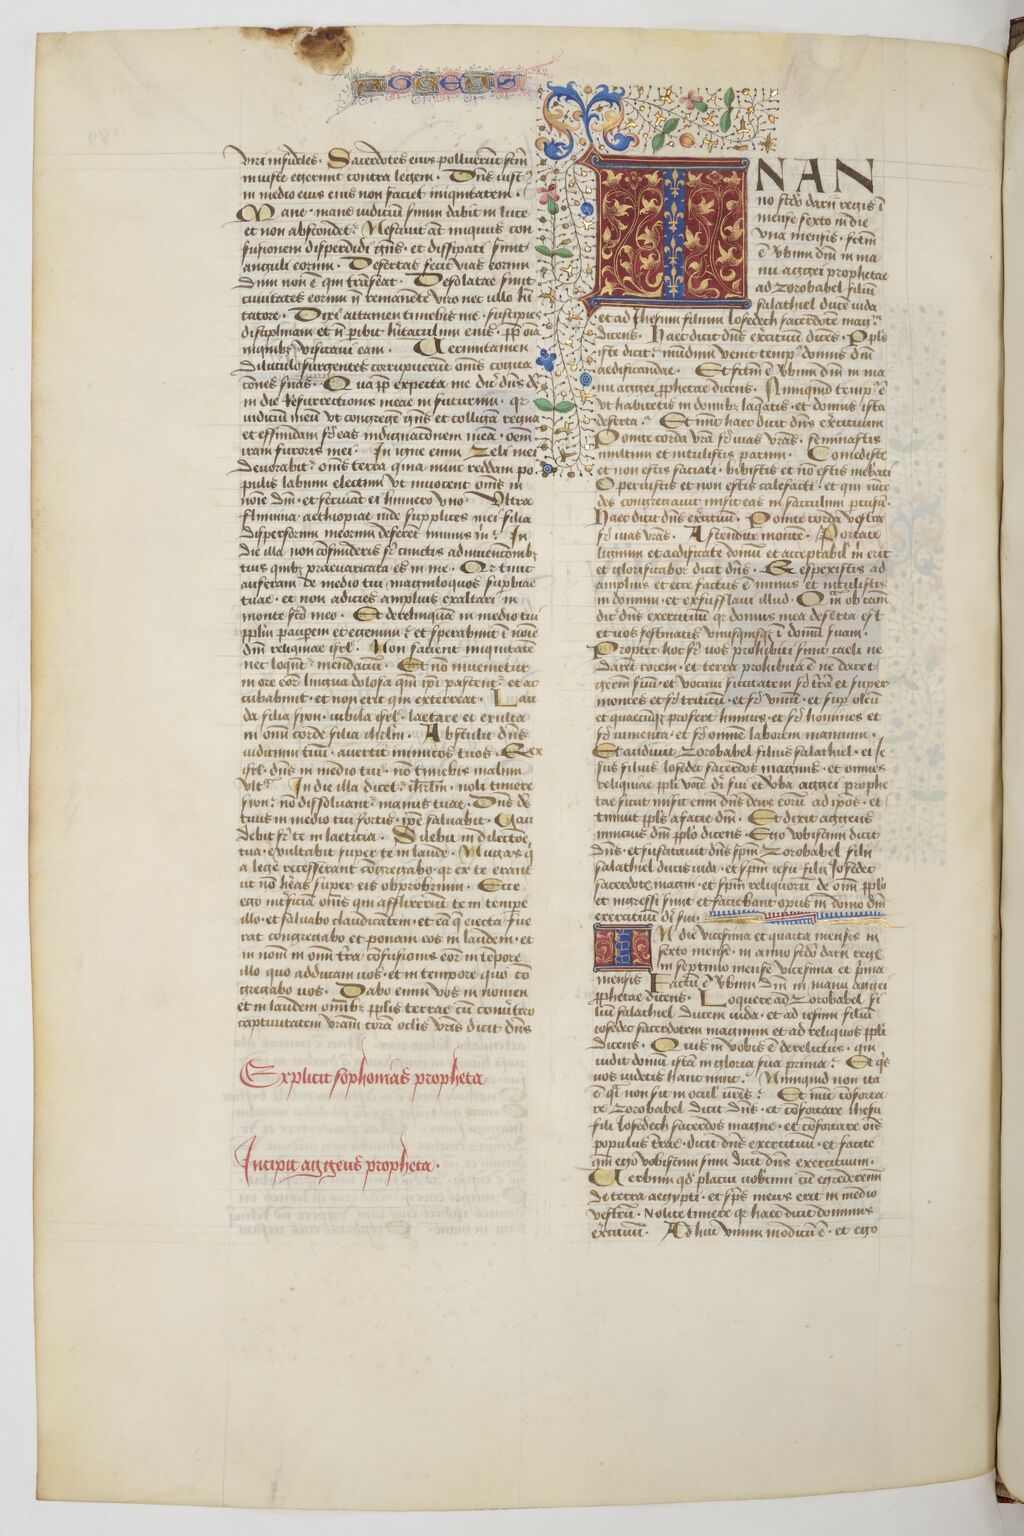 AGGEUS
viri infideles. Sacerdotes eius polluerūt scm
iniuste egerunt contra legem. Dns iust9
in medio eius eius non faciet iniquitatem.
Mane mane iudiciū suum dabit in luce
et non abscondet. Nesciuit at iniquus con
fusionem disperdidi gns. et dissipati sunt
anguli eorum. Desertas feci vias eorum
dum non ē qui trāseat. Desolatae sunt
ciuitates eorum n remanete viro nec ullo hi
tatore. Dixi attamen timebis me. suscipies
disciplinam et n peribit hitaculum eius. pp oia
in quibz visitaui eam. Verumtamen
diluculo surgentes corruperunt omis cogita
tones suas. Quapp expecta me dic dns
in die resurrectionis meae in futurum. qr
iudiciū meū vt congregē gns et colligā regna
et effundam sr eas indignaconem meā. oem
iram furoris mei. In igne enim Zeli mei
deuorabit omis terra quia nunc reddam po
pulis labium electum vt inuocent oms in
noie dm. et seruiant ei humero vno. Vltra
flumina aethiopiae inde supplices mei filia
dispersorum meorum deferet munus m. In
die illa non cōfunderis sr cunctis adinuentionibz
tuis quibz praeuaricata es in me. Qr tunc
auferam de medio tui magniloquos superbiae
tuae. et non adicies amplius exaltari in
monte sco meo. Et derelinquā in medio tui
pplm pauperem et egenum. et sperabunt ī noie
dm reliquiae isrl. Non facient iniquitatē
nec loquent mendaciū. Et nō inuenietur
in ore eor lingua dolosa qm ipi pascent. et ac
cubabunt. et non erit qui exterreat. Lau
da filia sion. iubila isrl. laetare et exulta
in omi corde filia ihrlm. Abstulit dns
iudicium tuū. auertit inimicos tuos. Rex
isrl. dns in medio tui. nō timebis malum
vltra. In die illa dicet ihrlm. noli timere
sion. nō dissoluant manus tuae. Dns ds
tuus in medio tui fortis. ipē saluabit. Gau
debit sr te in laeticia. Silebit in dilectoe
tua. exultabit super te in laude. Nugas q
a lege recesserant congregabo. qr ex te erant
ut nō hēas super eis obprobrium. Ecce
ego interficiā omis qui afflixerunt te in tempe
illo. et saluabo claudicatem. et eā q eiecta fue
rat congregabo et ponam eos in laudem. et
in nom in omi trā cōfusionis eor in tēpore
illo quo adducam uos. et in tempore quo cō
gregabo uos. Dabo enim vos in nomen
et in laudem omibz pplis terrae cū conutero
captiuitatem vram corā oclis vris dicit dns
Explicit sophonias propheta
Incipit aggeus propheta.
IN AN
no scdo darii regis ī
mense sexto in die
vna mensis. fctm
ē vbum dm in ma
nu aggei prophetae
ad Zorobabel filiū
salathiel ducē iuda
et ad ihesum filium Iosedech sacerdotē mag
dicens. Haec dicit dns exrcituū dices. Ppls
iste dicit. nundum venit temp9 domus dm
aedificandae. Et fctm ē vbum dm in ma
nu aggei pphetae dicens. Numquid temp9 ē
vt habitetis in domibz laqatis. et domus ista
deserta. Et nunc haec dicit dns exrcituum
Ponite corda vra sr uias vras. Seminastis
multum et intulistis parum. Comedistis
et non estis saciati. bibistis et nō estis inebriati
Operuistis et non estis calefacti. et qui mrce
des congregauit misit eas in sacculum ptusū.
Haec dicit dns exrcituū. Ponite corda vestra
sr uias vras. Ascendite monte. Portate
lignum et aedificate domū et acceptabil m erit
et glorificabor dicit dns. Respexistis ad
amplius et ecce factus ē minus et intulistis
in domum. et exsufflaui illud. Qm ob cam
dic dns exercituū qr domus mea deserta est
et uos festinatis vnusquisqz ī domū suam.
Propter hoc sr uos prohibiti sunt caeli ne
darēt rorem. et terra prohibita ē ne daret
germ suū. et vocaui siccitatem sr trā et super
montes et sr triticū. et sr vinū. et sup oleū
et quaecūqz profert humus. et sr homines et
sr iumenta. et sr omne laborem manuum.
Et audiuit Zorobabel filius salathiel. et Ie
sus filius Iosedec sacerdos magnus. et omnes
reliquiae ppli voce di sui et vba aggei prophe
tae sicut misit eum dns deus eorū ad ipos. et
timuit ppls a facie dm. Et dixit aggeus
nuncius dm pplo dicens. Ego vobiscum dicit
dns. et suscitauit dns spm Zorobabel filii
salathiel ducis iuda. et spm iesu filii Iosedec
sacerdote magni. et spm reliquorū de omi pplo
et ingressi sunt et faciebant opus in domo dm
exercituū di sui.
IN die vicesima et quarta mensis in
sexto mense. in anno scdo darii rege
in septimo mense vicesima et prima
mensis Factū ē vbum dm in manu aggei
pphetae dicens. Loquere ad Zorobabel fi
liū salathiel ducem iuda. et ad iesum filiū
iosedec sacerdotem magnum et ad reliquos ppli
dicens. Quis in vobis ē derelictus. qui
uidit domū istā in gloria sua prima. Et qs
uos uidetis hanc nunc. Numquid non ita
ē qi non sit in ocul vris. Et nunc cōforta
re Zorobabel dicit dns. et cōfortare ihesu
fili Iosedech sacerdos magne. et cōfortare ois
populus trae. dicit dns exercituū. et facite
qm ego vobiscum sum dicit dns exercituum.
Verbum qd placui uobiscum cū egrederemi
de terra aegypti. et sps meus erit in medio
vestrū. Nolite timere qr haec dicit dominus
exrcituū. Adhuc vnum modicū ē. et ego